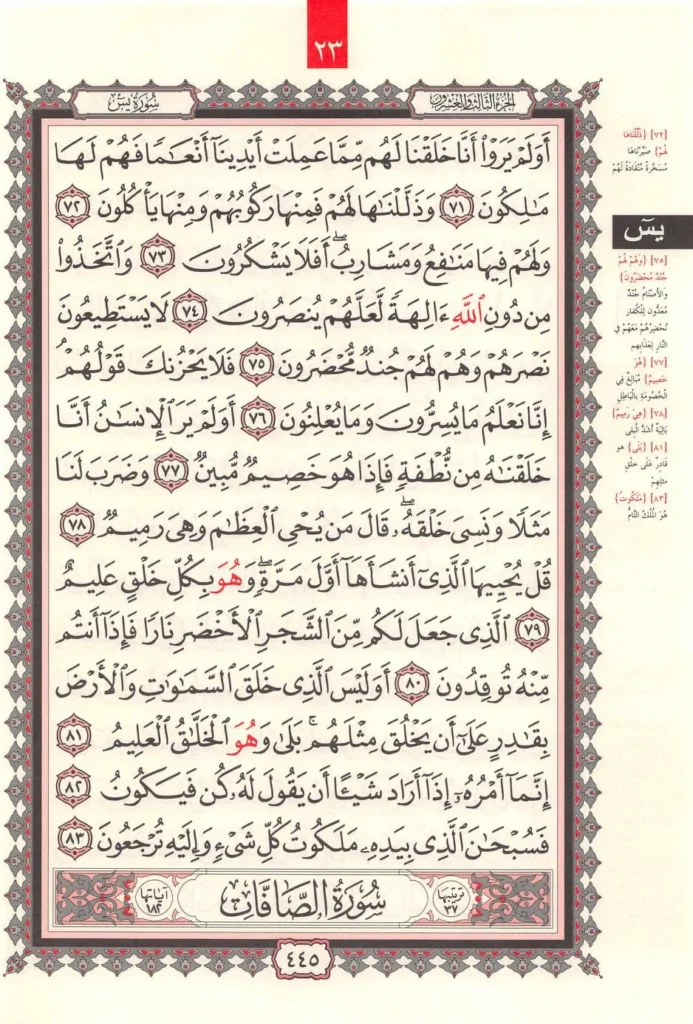 ٢٣
سُورَةُ يسٓ
الجزء الثالث والعشرون
أَوَلَمْ يَرَوْا۟ أَنَّا خَلَقْنَا لَهُم مِّمَّا عَمِلَتْ أَيْدِينَآ أَنْعَٰمًا فَهُمْ لَهَا
مَٰلِكُونَ ٧١ وَذَلَّلْنَٰهَا لَهُمْ فَمِنْهَا رَكُوبُهُمْ وَمِنْهَا يَأْكُلُونَ ٧٢
وَلَهُمْ فِيهَا مَنَٰفِعُ وَمَشَارِبُ ۖ أَفَلَا يَشْكُرُونَ ٧٣ وَٱتَّخَذُوا۟
مِن دُونِ ٱللَّهِ ءَالِهَةً لَّعَلَّهُمْ يُنصَرُونَ ٧٤ لَا يَسْتَطِيعُونَ
نَصْرَهُمْ وَهُمْ لَهُمْ جُندٌ مُّحْضَرُونَ ٧٥ فَلَا يَحْزُنكَ قَوْلُهُمْ ۘ
إِنَّا نَعْلَمُ مَا يُسِرُّونَ وَمَا يُعْلِنُونَ ٧٦ أَوَلَمْ يَرَ ٱلْإِنسَٰنُ أَنَّا
خَلَقْنَٰهُ مِن نُّطْفَةٍ فَإِذَا هُوَ خَصِيمٌ مُّبِينٌ ٧٧ وَضَرَبَ لَنَا
مَثَلًا وَنَسِىَ خَلْقَهُۥ ۖ قَالَ مَن يُحْىِ ٱلْعِظَٰمَ وَهِىَ رَمِيمٌ ٧٨
قُلْ يُحْيِيهَا ٱلَّذِىٓ أَنشَأَهَآ أَوَّلَ مَرَّةٍ ۖ وَهُوَ بِكُلِّ خَلْقٍ عَلِيمٌ
٧٩ ٱلَّذِى جَعَلَ لَكُم مِّنَ ٱلشَّجَرِ ٱلْأَخْضَرِ نَارًا فَإِذَآ أَنتُم
مِّنْهُ تُوقِدُونَ ٨٠ أَوَلَيْسَ ٱلَّذِى خَلَقَ ٱلسَّمَٰوَٰتِ وَٱلْأَرْضَ
بِقَٰدِرٍ عَلَىٰٓ أَن يَخْلُقَ مِثْلَهُم ۚ بَلَىٰ وَهُوَ ٱلْخَلَّٰقُ ٱلْعَلِيمُ ٨١
إِنَّمَآ أَمْرُهُۥٓ إِذَآ أَرَادَ شَيْـًٔا أَن يَقُولَ لَهُۥ كُن فَيَكُونُ ٨٢
فَسُبْحَٰنَ ٱلَّذِى بِيَدِهِۦ مَلَكُوتُ كُلِّ شَىْءٍ وَإِلَيْهِ تُرْجَعُونَ ٨٣
ترتيبها ٣٧
سُورَةُ الصَّافَّاتِ
آياتها ١٨٢
٤٤٥
[٧٢] {ذَلَّلْنَاهَا
لَهُمْ} صَيَّرْنَاهَا
مُسَخَّرَةً مُنْقَادَةً لَهُمْ
يسٓ
[٧٥] {وَهُمْ لَهُمْ
جُنْدٌ مُحْضَرُونَ}
وَالأَصْنَامُ جُنْدٌ
مُعَدُّونَ لِلْكُفَّارِ
نُحْضِرُهُمْ مَعَهُمْ فِي
النَّارِ لِعَذَابِهِم
[٧٧] {هُوَ
خَصِيمٌ} مُبَالِغٌ فِي
الْخُصُومَةِ بِالْبَاطِلِ
[٧٨] {هِيَ رَمِيمٌ}
بَالِيَةٌ أَشَدَّ الْبِلَى
[٨١] {بَلَى} هو
قَادِرٌ عَلَى خَلْقِ
مِثْلِهِمْ
[٨٣] {مَلَكُوتُ}
هُوَ الْمُلْكُ التَّامُّ